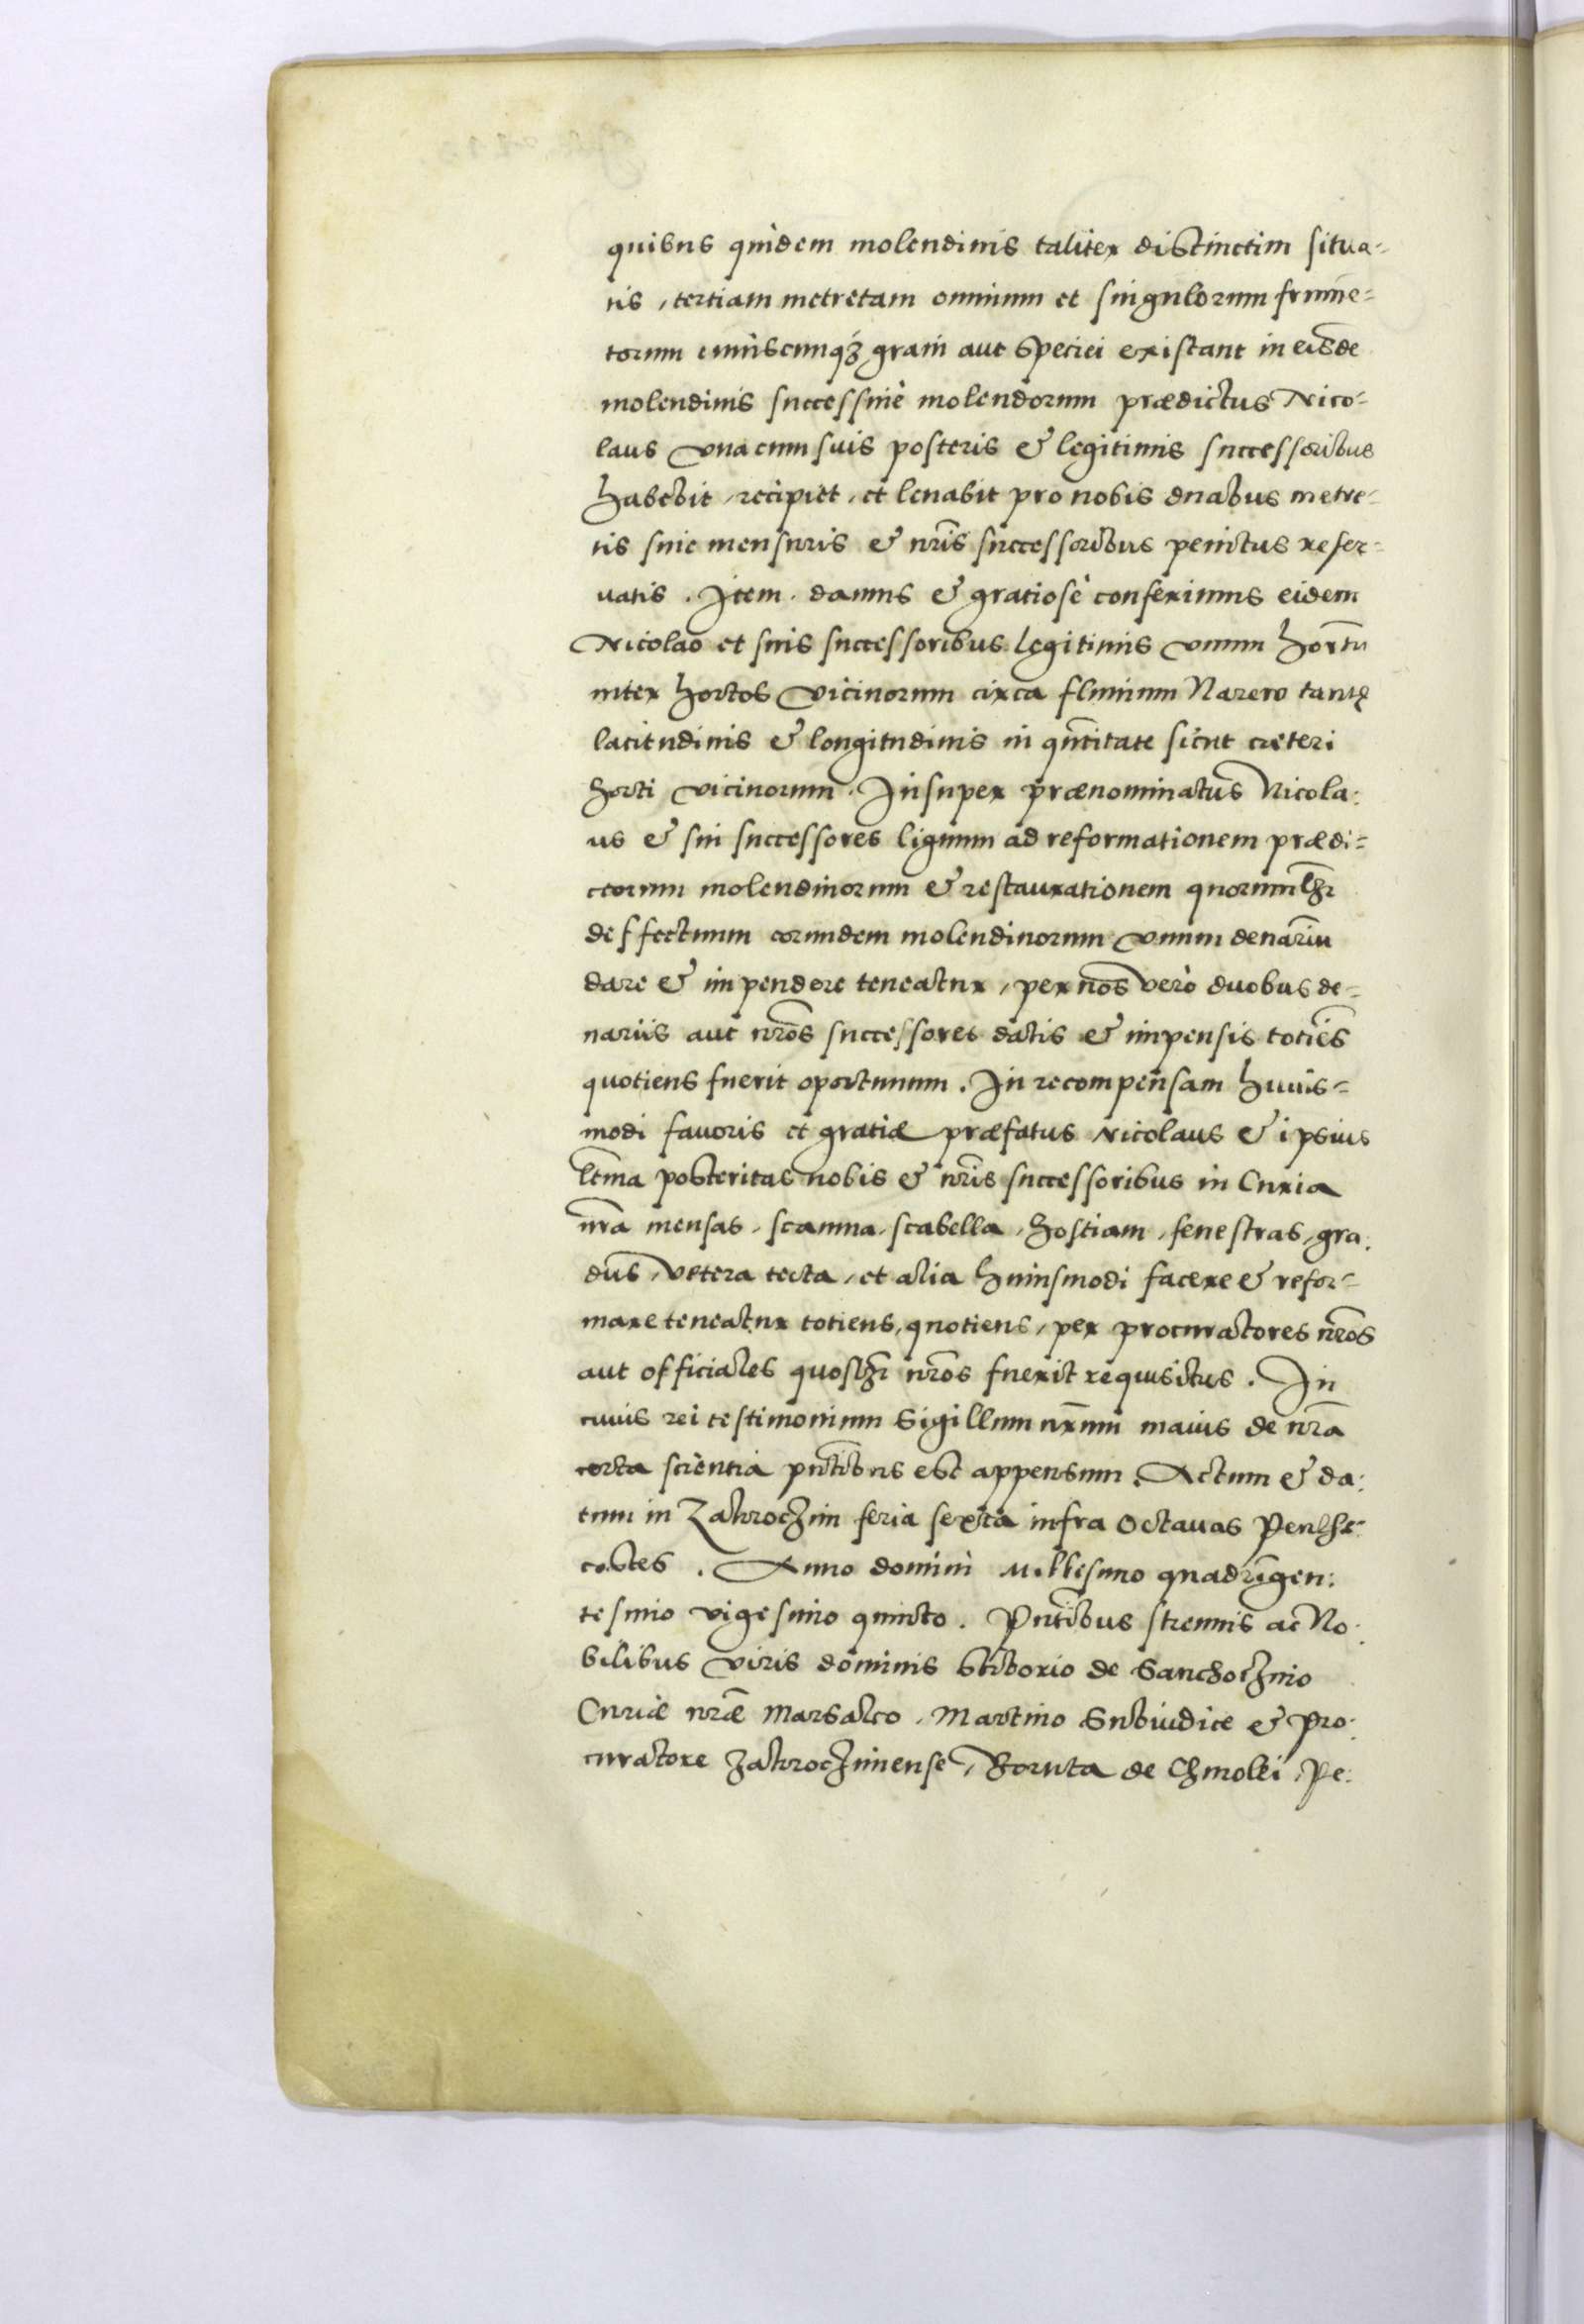 quibus quidem molendinis taliter distinctim situa=
tis, tertiam metretam omnium et singulorum frumē=
torum cuiuscunq; grani aut speciei existant in eisdē
molendinis successivè molendorum prædictus Nico=
laus vna cum suis posteris & legitimis successoribus
habebit, recipiet, et levabit pro nobis duabus metre=
tis sive mensuris & nr̄is successoribus penitus reser=
vatis. Item damus & gratiosè conferimus eidem
Nicolao et suis successoribus legitimis vnum hortū
inter hortos vicinorum circa fluvium Narew tantę
latitudinis & longitudinis in qūtitate sicut cæteri
horti vicinorum. Insuper prænominatus Nicola:
us & sui successores lignum ad reformationem prædi=
ctorum molendinorum & restaurationem quorumlꝫ
deffectuum eorumdem molendinorum vnum denariū
dare & impendere teneatur, per nos verò duobus de=
nariis aut nr̄os successores datis & impensis totiēs
quotiens fuerit oportunum. In recompensam huius=
modi favoris et gratiæ præfatus Nicolaus & ipsius
ltīma posteritas nobis & nr̄is successoribus in Curia
nr̄a mensas, scamna, scabella, hostiam, fenestras, gra:
dus, vetera tecta, et alia huiusmodi facere & refor=
mare teneatur totiens, quotiens, per procuratores nr̄os
aut officiales quoslꝫ nr̄os fuerit requisitus. In
cuius rei testimonium Sigillum nr̄um maius de nr̄a
certa scientia pn̄tibus est appensum. Actum & da:
tum in Zakroczim feria sexta infra Octavas Penthe:
costes. Anno domini Millesimo quadringen:
tesimo vigesimo quinto. Pn̄tibus strenuis ac No:
bilibus viris dominis Stiborio de Sanchoczino
Curiæ nr̄æ Marsalco, Martino Subiudice & Pro:
curatore Zakroczimense, Boruta de Chmolki, Pe: